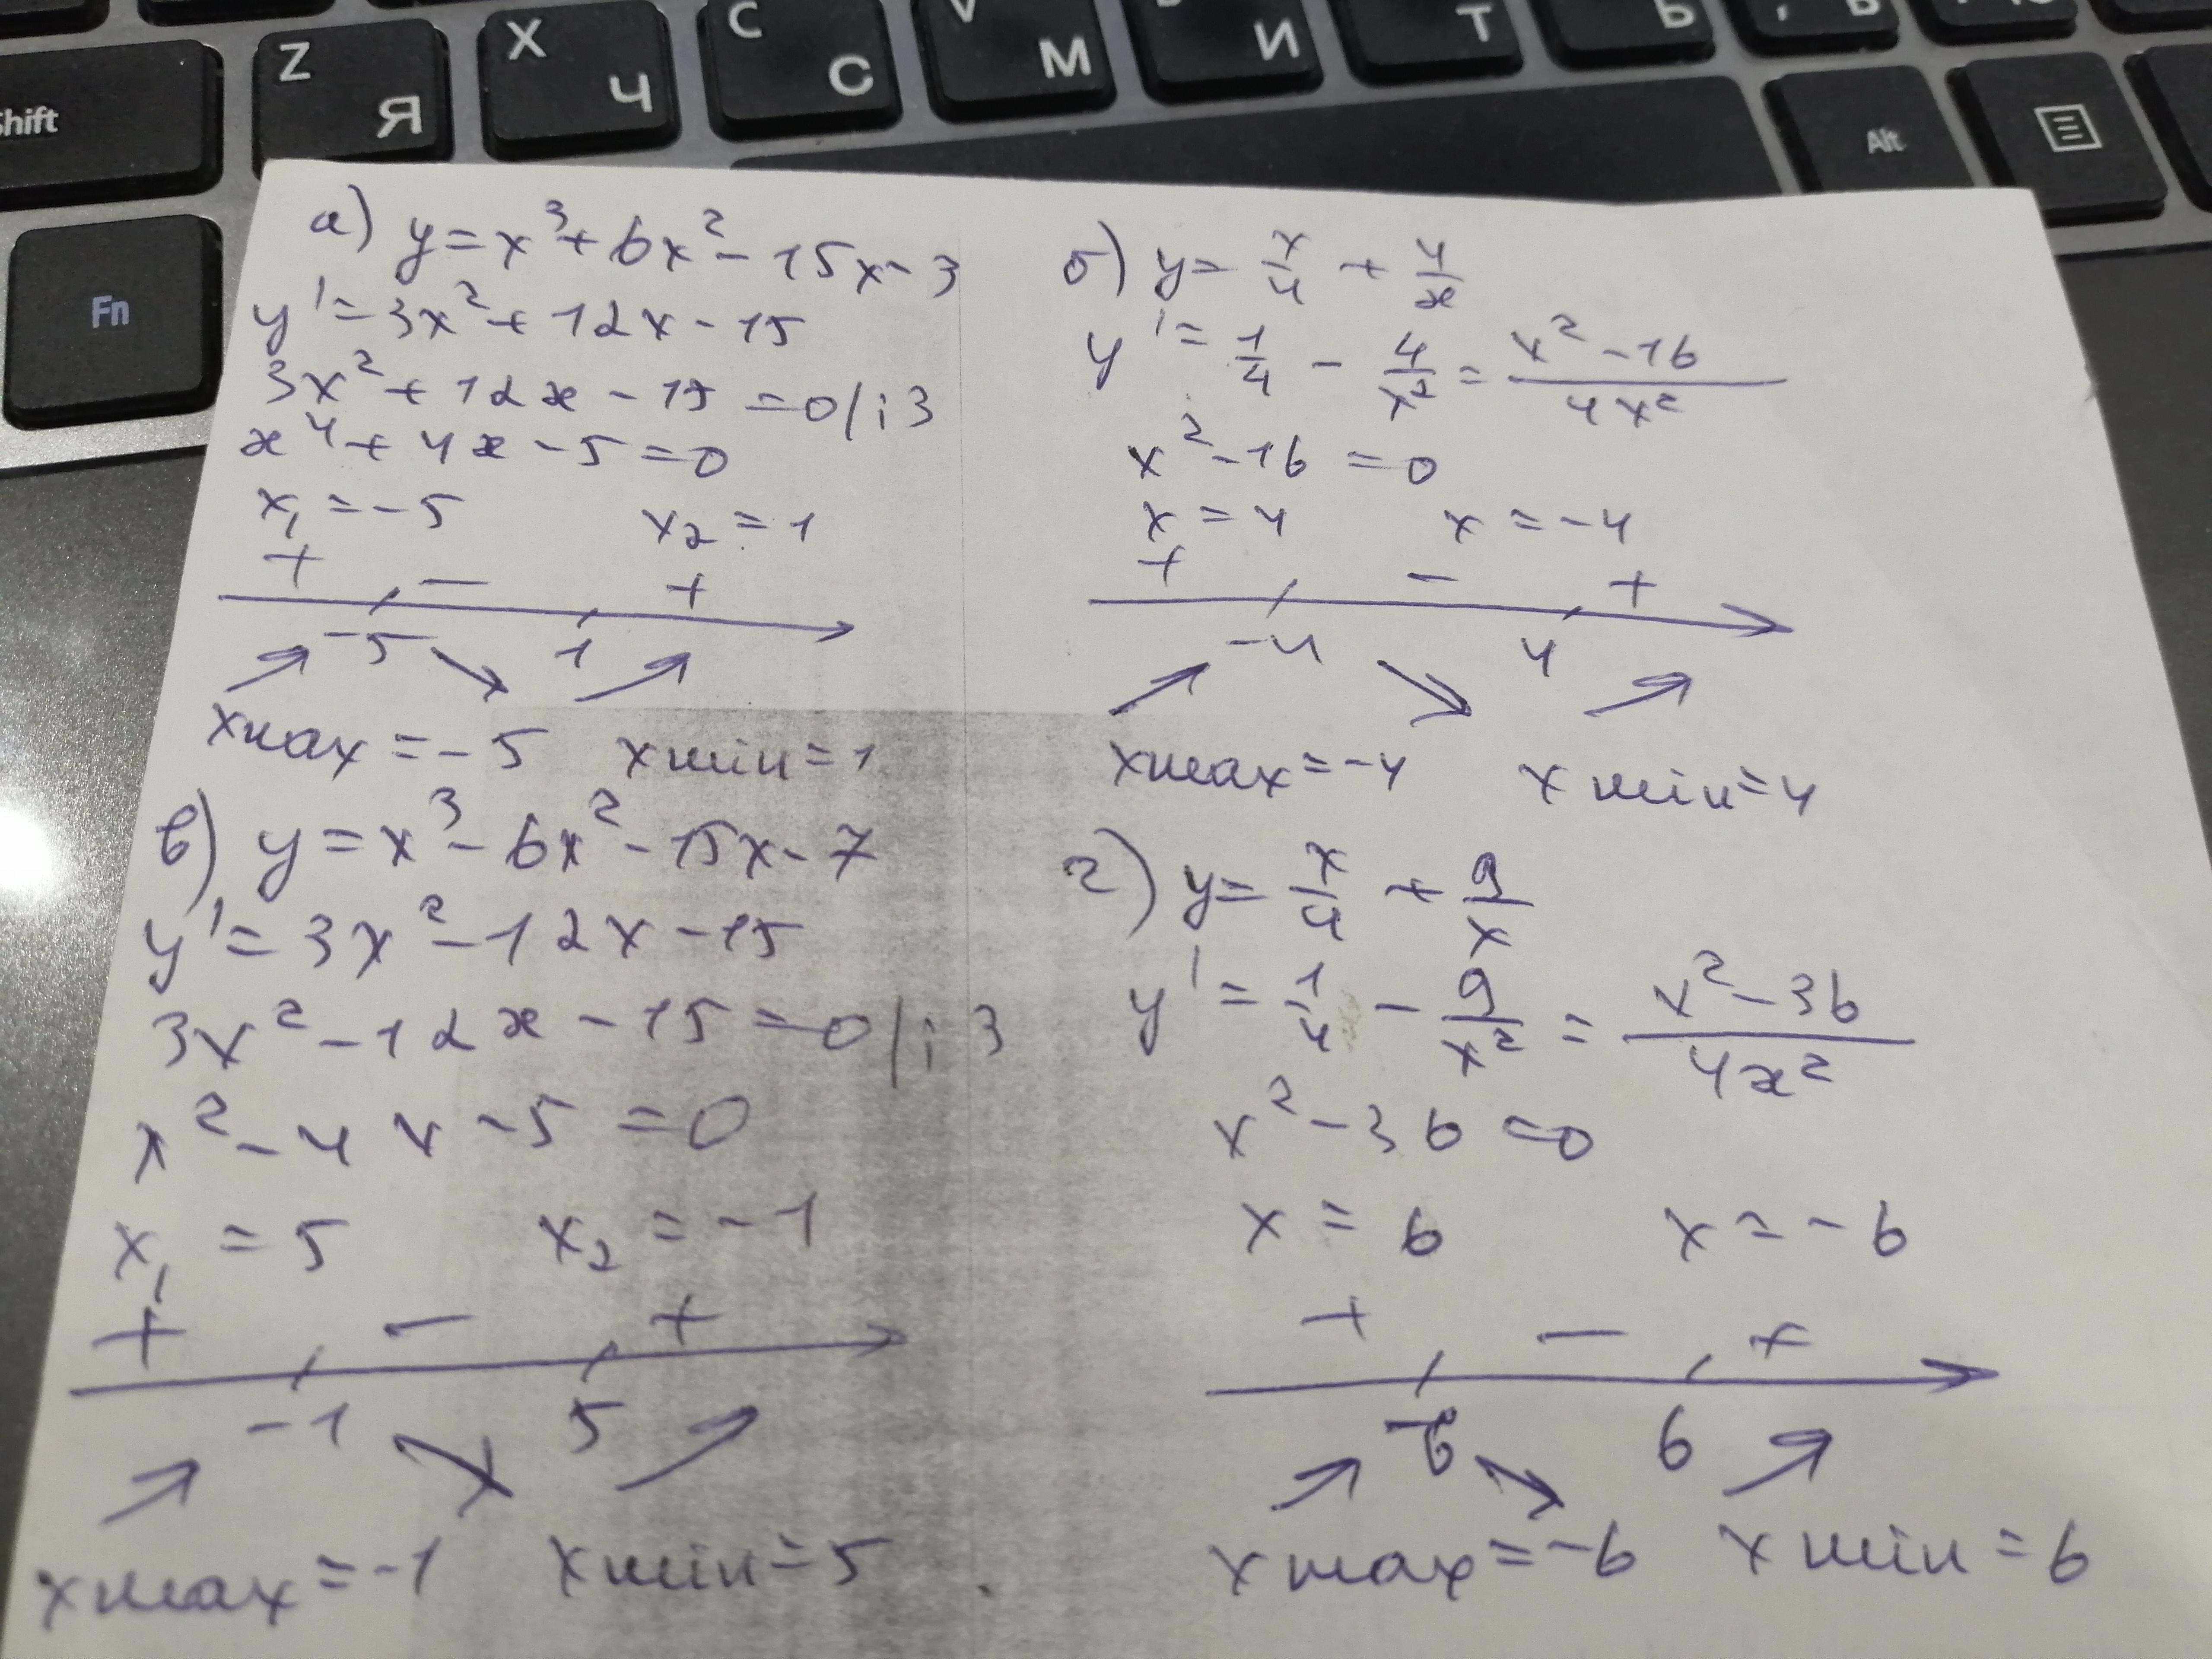 Z X C V
Shift Я Ч С М И Т Ь
Alt
Fn
а) y = x³ + 6x² - 15x - 3
y' = 3x² + 12x - 15
3x² + 12x - 15 = 0 | : 3
x⁴ + 4x - 5 = 0
x₁ = -5 x₂ = 1
+ - +
-5 1
xmax = -5 xmin = 1
б) y = x/4 + 4/x
y' = 1/4 - 4/x² = x² - 16 / 4x²
x² - 16 = 0
x = 4 x = -4
+ - +
-4 4
xmax = -4 xmin = 4
в) y = x³ - 6x² - 15x - 7
y' = 3x² - 12x - 15
3x² - 12x - 15 = 0 | : 3
x² - 4x - 5 = 0
x₁ = 5 x₂ = -1
+ - +
-1 5
xmax = -1 xmin = 5
г) y = x/4 + 9/x
y' = 1/4 - 9/x² = x² - 36 / 4x²
x² - 36 = 0
x = 6 x = -6
+ - +
-6 6
xmax = -6 xmin = 6